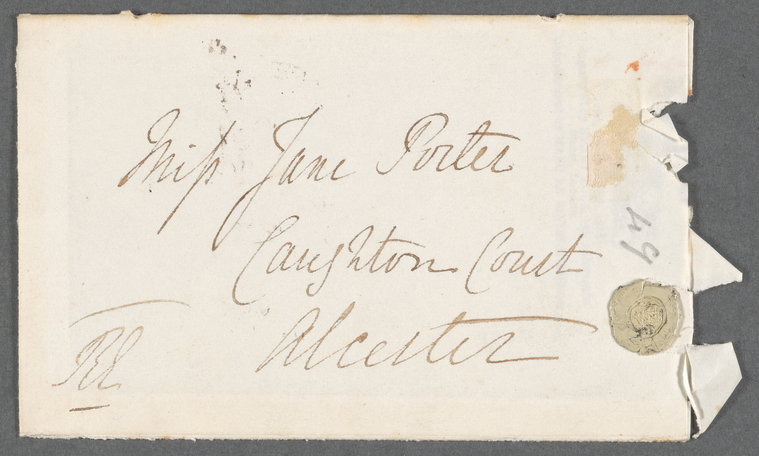 Miſs Jane Porter
Caughton Court
Alcester
49